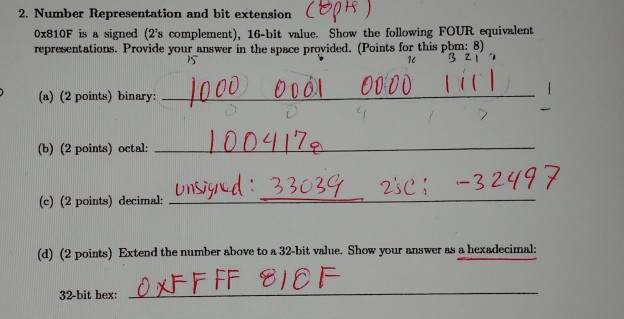 2. Number Representation and bit extension (8pts)
0x810F is a signed (2's complement), 16-bit value. Show the following FOUR equivalent
representations. Provide your answer in the space provided. (Points for this pbm: 8)
15 3 2 1 0
(a) (2 points) binary: 1000 0001 0000 1111
0 0 4 1 7
(b) (2 points) octal: 100417₈
(c) (2 points) decimal: unsigned: 33039 2'sC: -32497
(d) (2 points) Extend the number above to a 32-bit value. Show your answer as a hexadecimal:
32-bit hex: 0xFFFF 810F